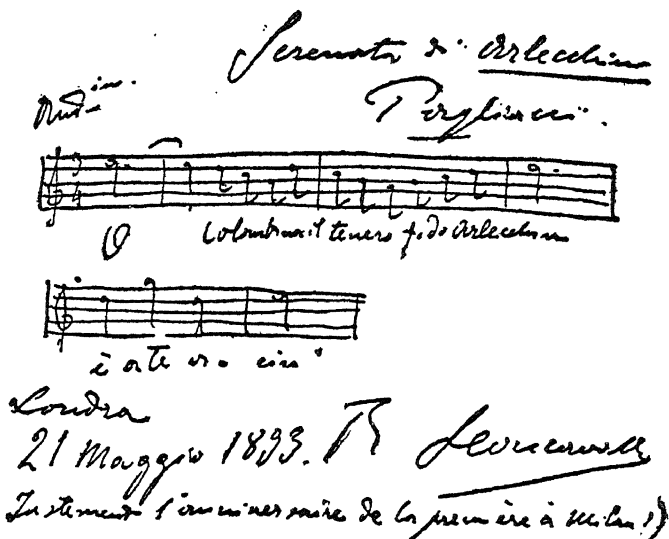 Serenata di Arlecchino
Pagliacci.
And-in.
3
4
O Colombina il tenero fido Arlecchin
è a te vi-cin!
Londra
21 Maggio 1893. R Leoncavallo
Justement l'anniversaire de la première à Milan!)